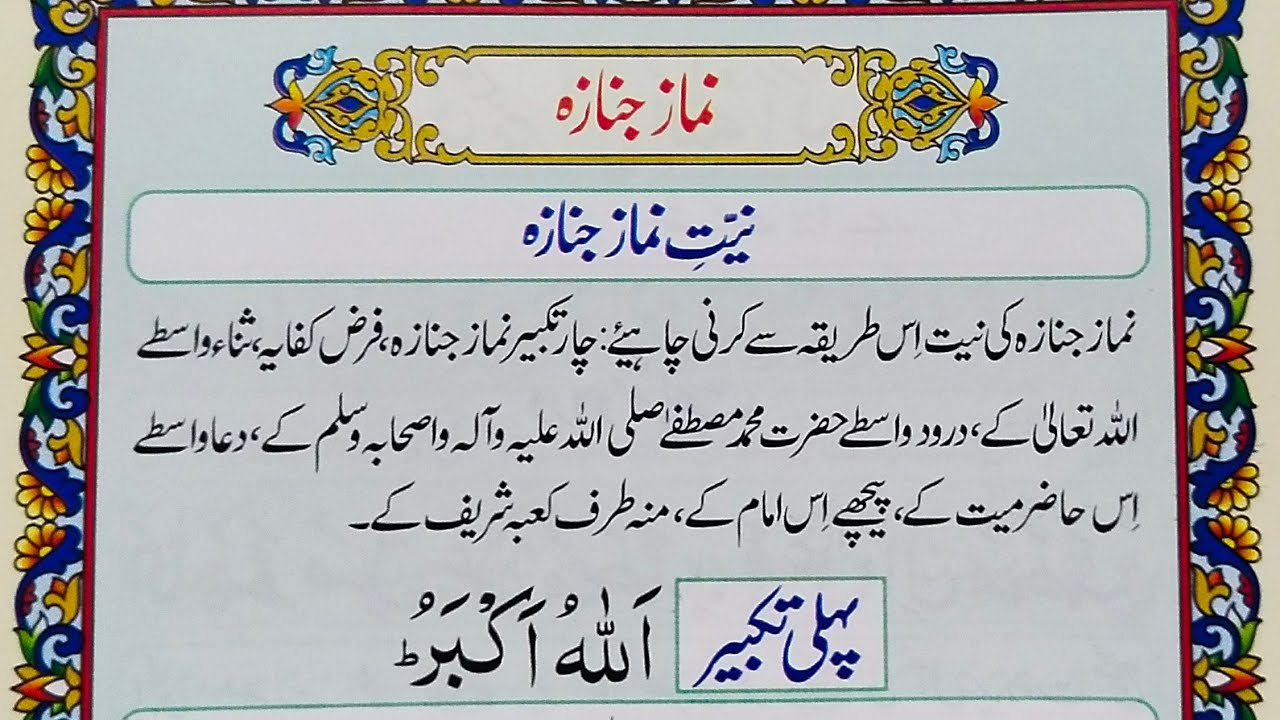 نماز جنازہ
نیّتِ نماز جنازہ
نماز جنازہ کی نیت اِس طریقہ سے کرنی چاہیئے: چار تکبیر نماز جنازہ، فرض کفایہ، ثناء واسطے
اللہ تعالیٰ کے، درود واسطے حضرت محمد مصطفےٰ صلی اللہ علیہ وآلہ واصحابہ وسلم کے، دعا واسطے
اِس حاضر میت کے، پیچھے اِس امام کے، منہ طرف کعبہ شریف کے۔
پہلی تکبیر اَللّٰہُ اَکْبَرُ ط